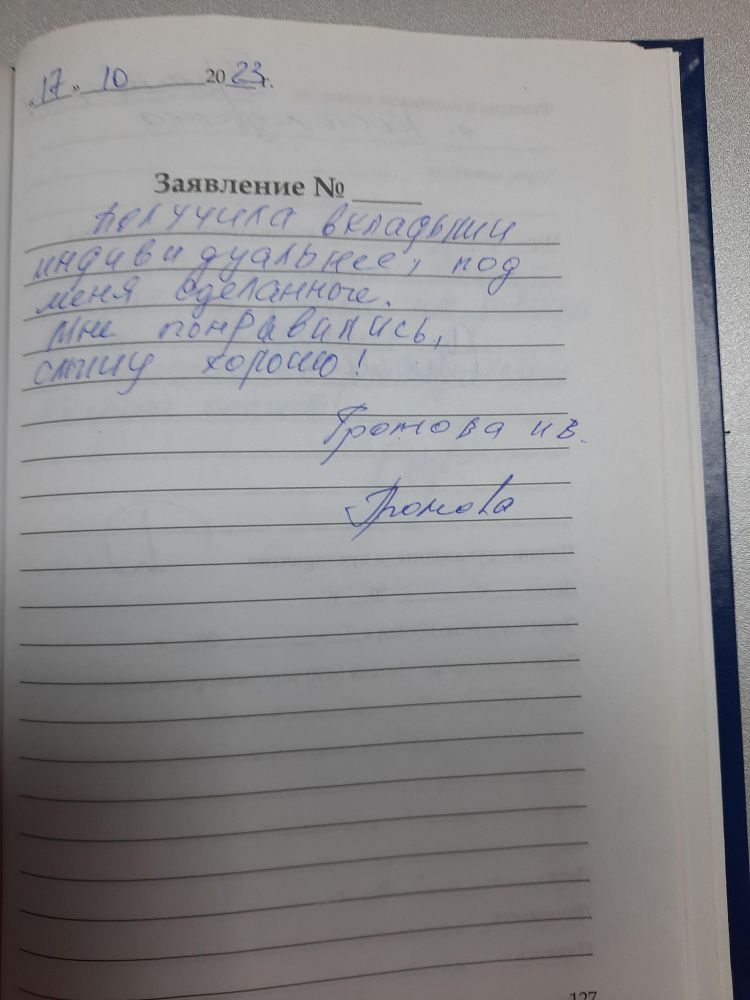 «17» 10 2023г.
Заявление №
Получила вкладыши
индивидуальнее, под
меня сделанные.
Мне понравились,
слышу хорошо!
Громова ив.
Громова
127